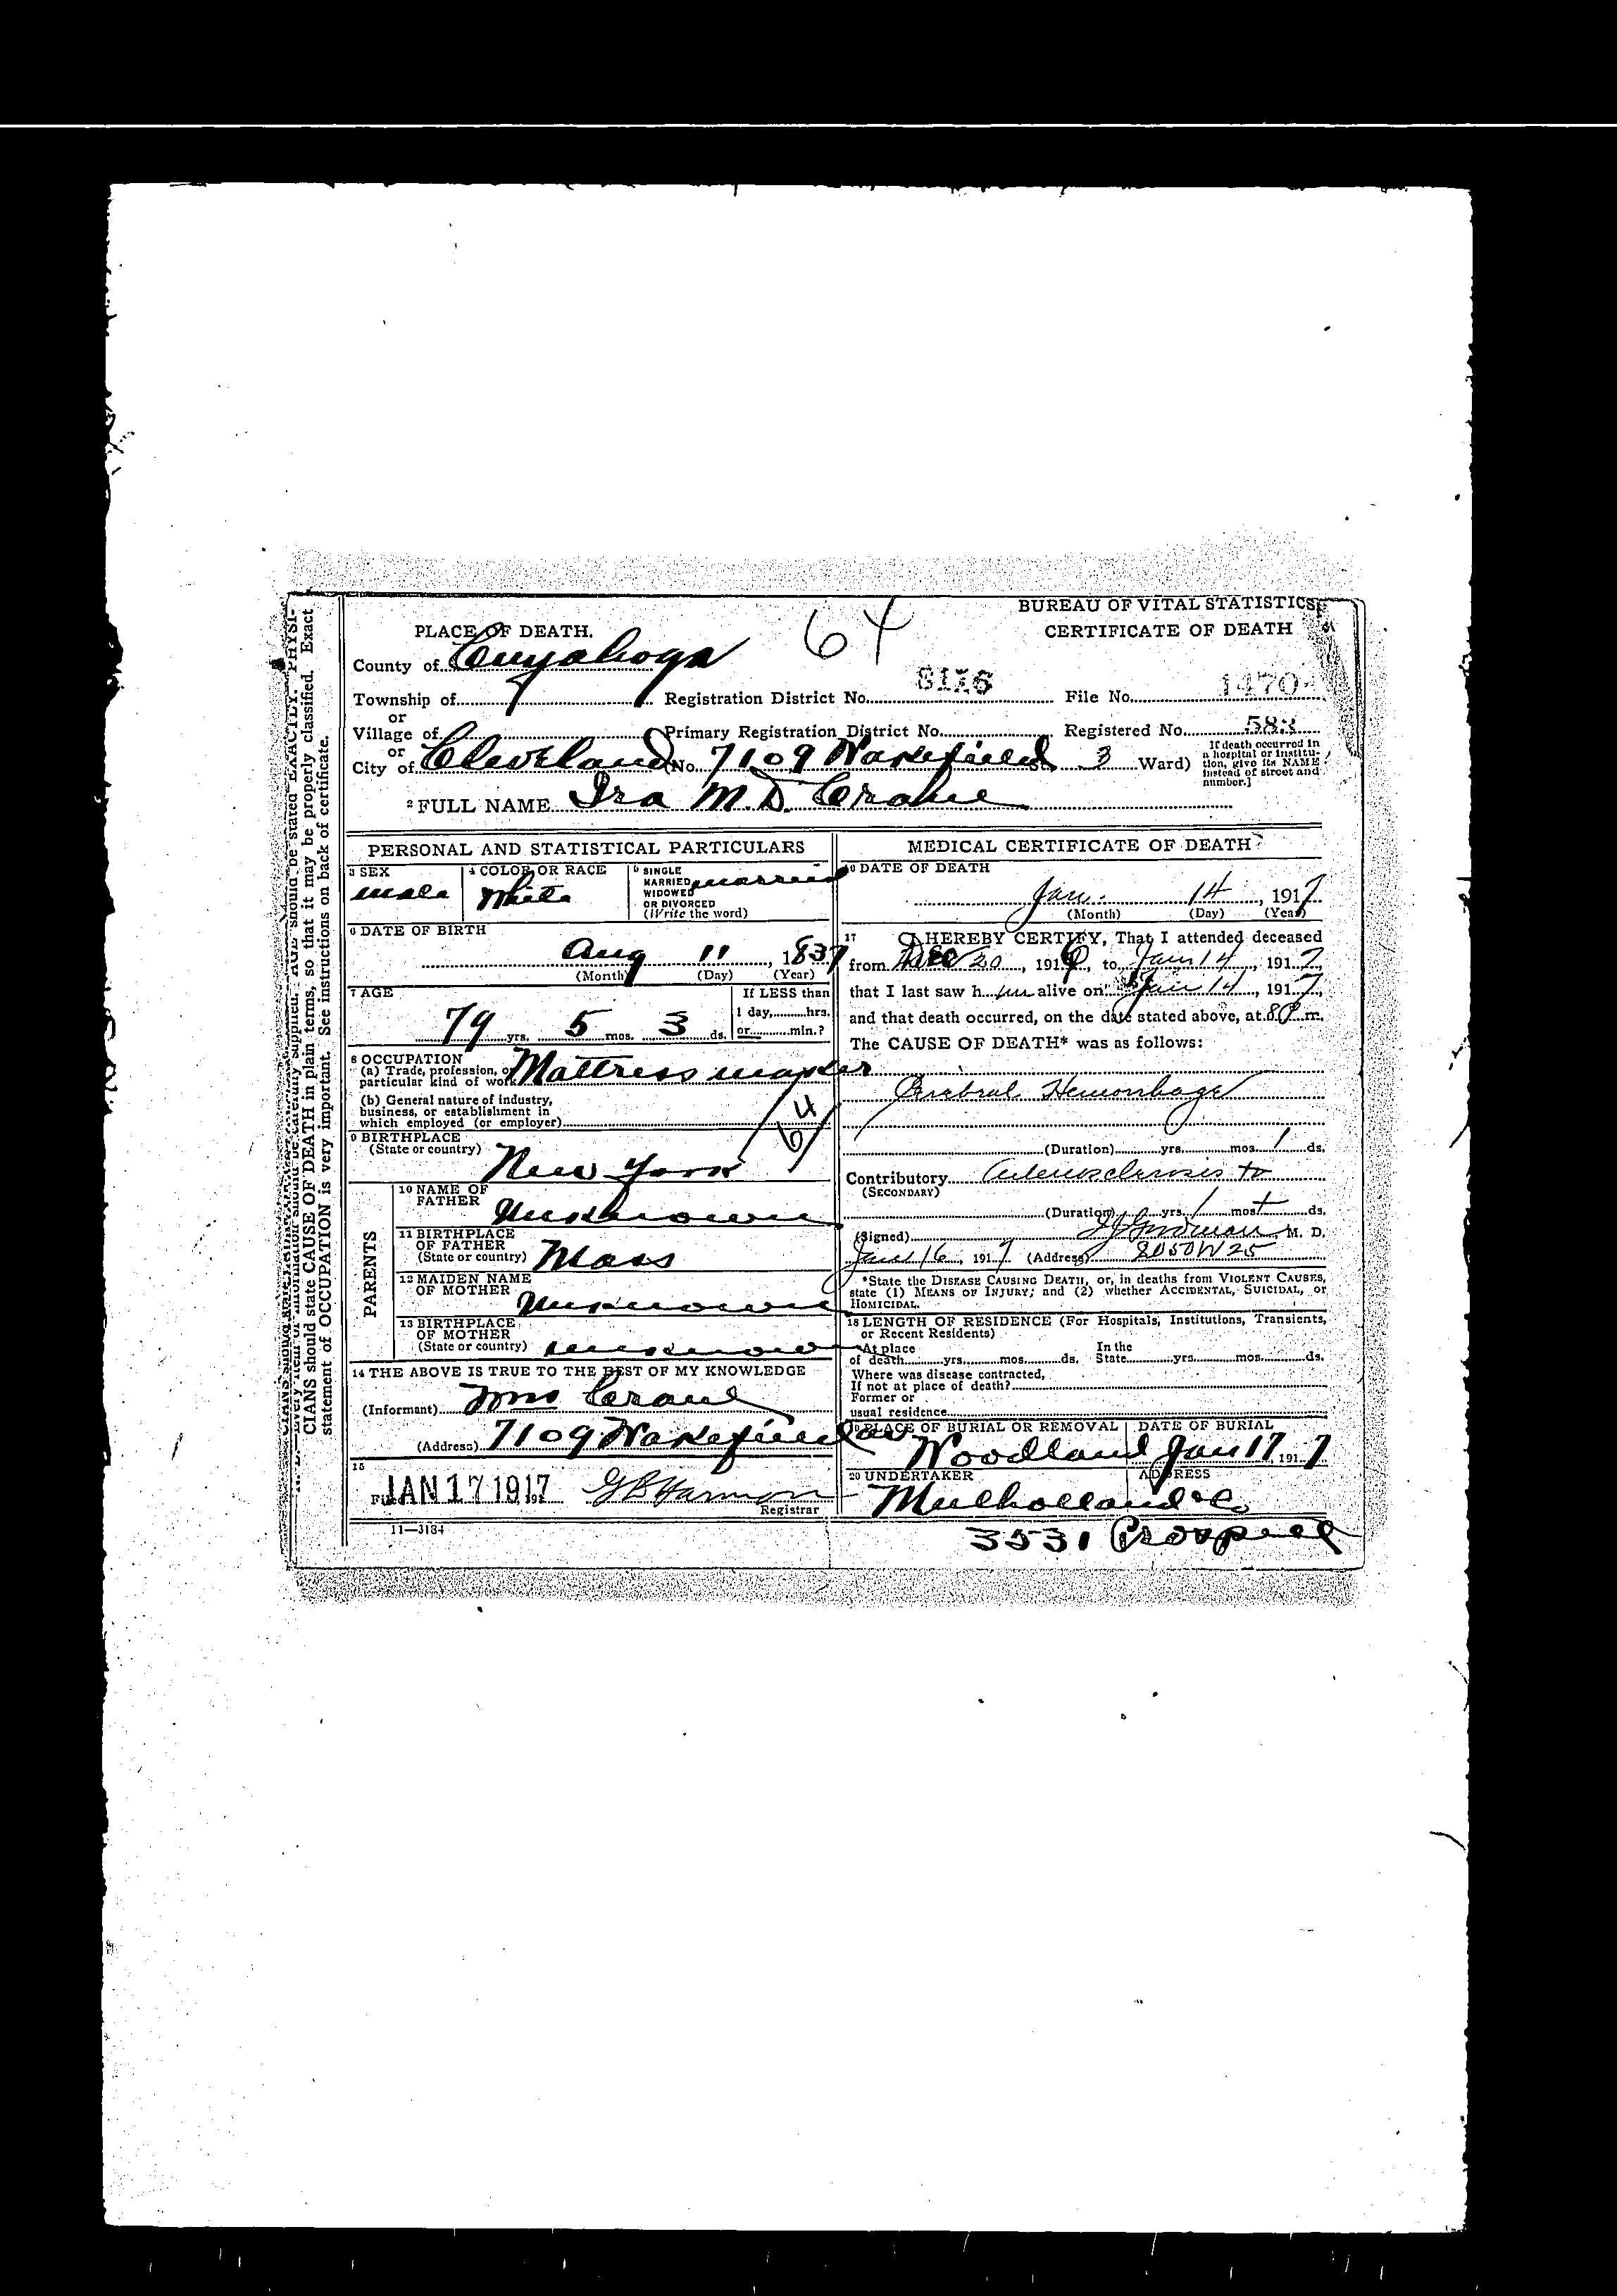 BUREAU OF VITAL STATISTICS
CERTIFICATE OF DEATH
64
PLACE OF DEATH.
County of Cuyahoga
Township of Registration District No. 8116 File No. 1470
or
Village of Primary Registration District No. Registered No. 583
or
City of Cleveland (No. 7109 Wakefield 3 Ward)
If death occurred in
a hospital or institu-
tion, give its NAME
instead of street and
number.]
2 FULL NAME Ira M.D. Crane
PERSONAL AND STATISTICAL PARTICULARS
3 SEX
male
4 COLOR OR RACE
White
5 SINGLE
MARRIED
WIDOWED
OR DIVORCED
(Write the word)
married
6 DATE OF BIRTH
Aug 11, 1837
(Month) (Day) (Year)
7 AGE
79 yrs. 5 mos. 3 ds.
If LESS than
1 day, hrs.
or min.?
8 OCCUPATION
(a) Trade, profession, or
particular kind of work Mattress maker
(b) General nature of industry,
business, or establishment in
which employed (or employer)
64
9 BIRTHPLACE
(State or country)
New York
PARENTS
10 NAME OF
FATHER
Unknown
11 BIRTHPLACE
OF FATHER
(State or country) Mass
12 MAIDEN NAME
OF MOTHER
Unknown
13 BIRTHPLACE
OF MOTHER
(State or country) unknown
14 THE ABOVE IS TRUE TO THE BEST OF MY KNOWLEDGE
(Informant) Mrs Crane
(Address) 7109 Wakefield av
15
Filed JAN 17 1917 , 191 G B Harmon
Registrar
11—3184
MEDICAL CERTIFICATE OF DEATH
16 DATE OF DEATH
Jan. 14, 1917
(Month) (Day) (Year)
17 I HEREBY CERTIFY, That I attended deceased
from Dec 20, 1916, to Jan 14, 1917,
that I last saw h im alive on Jan 14, 1917,
and that death occurred, on the date stated above, at 8 P m.
The CAUSE OF DEATH* was as follows:
Cerebral Hemorrhage
(Duration) yrs. mos. 1 ds.
Contributory Arteriosclerosis to
(SECONDARY)
(Duration) yrs. 1 mos. + ds.
(Signed) Goodman, M. D.
Jan 16, 1917 (Address) 2050 W 25
*State the DISEASE CAUSING DEATH, or, in deaths from VIOLENT CAUSES,
state (1) MEANS OF INJURY; and (2) whether ACCIDENTAL, SUICIDAL, or
HOMICIDAL.
18 LENGTH OF RESIDENCE (For Hospitals, Institutions, Transients,
or Recent Residents)
At place In the
of death yrs. mos. ds. State yrs. mos. ds.
Where was disease contracted,
If not at place of death?
Former or
usual residence
19 PLACE OF BURIAL OR REMOVAL
Woodland
DATE OF BURIAL
Jan 17 1917
20 UNDERTAKER
Mulholland & Co
ADDRESS
3531 Prospect
CIANS should state CAUSE OF DEATH in plain terms, so that it may be properly classified. Exact
statement of OCCUPATION is very important. See instructions on back of certificate.